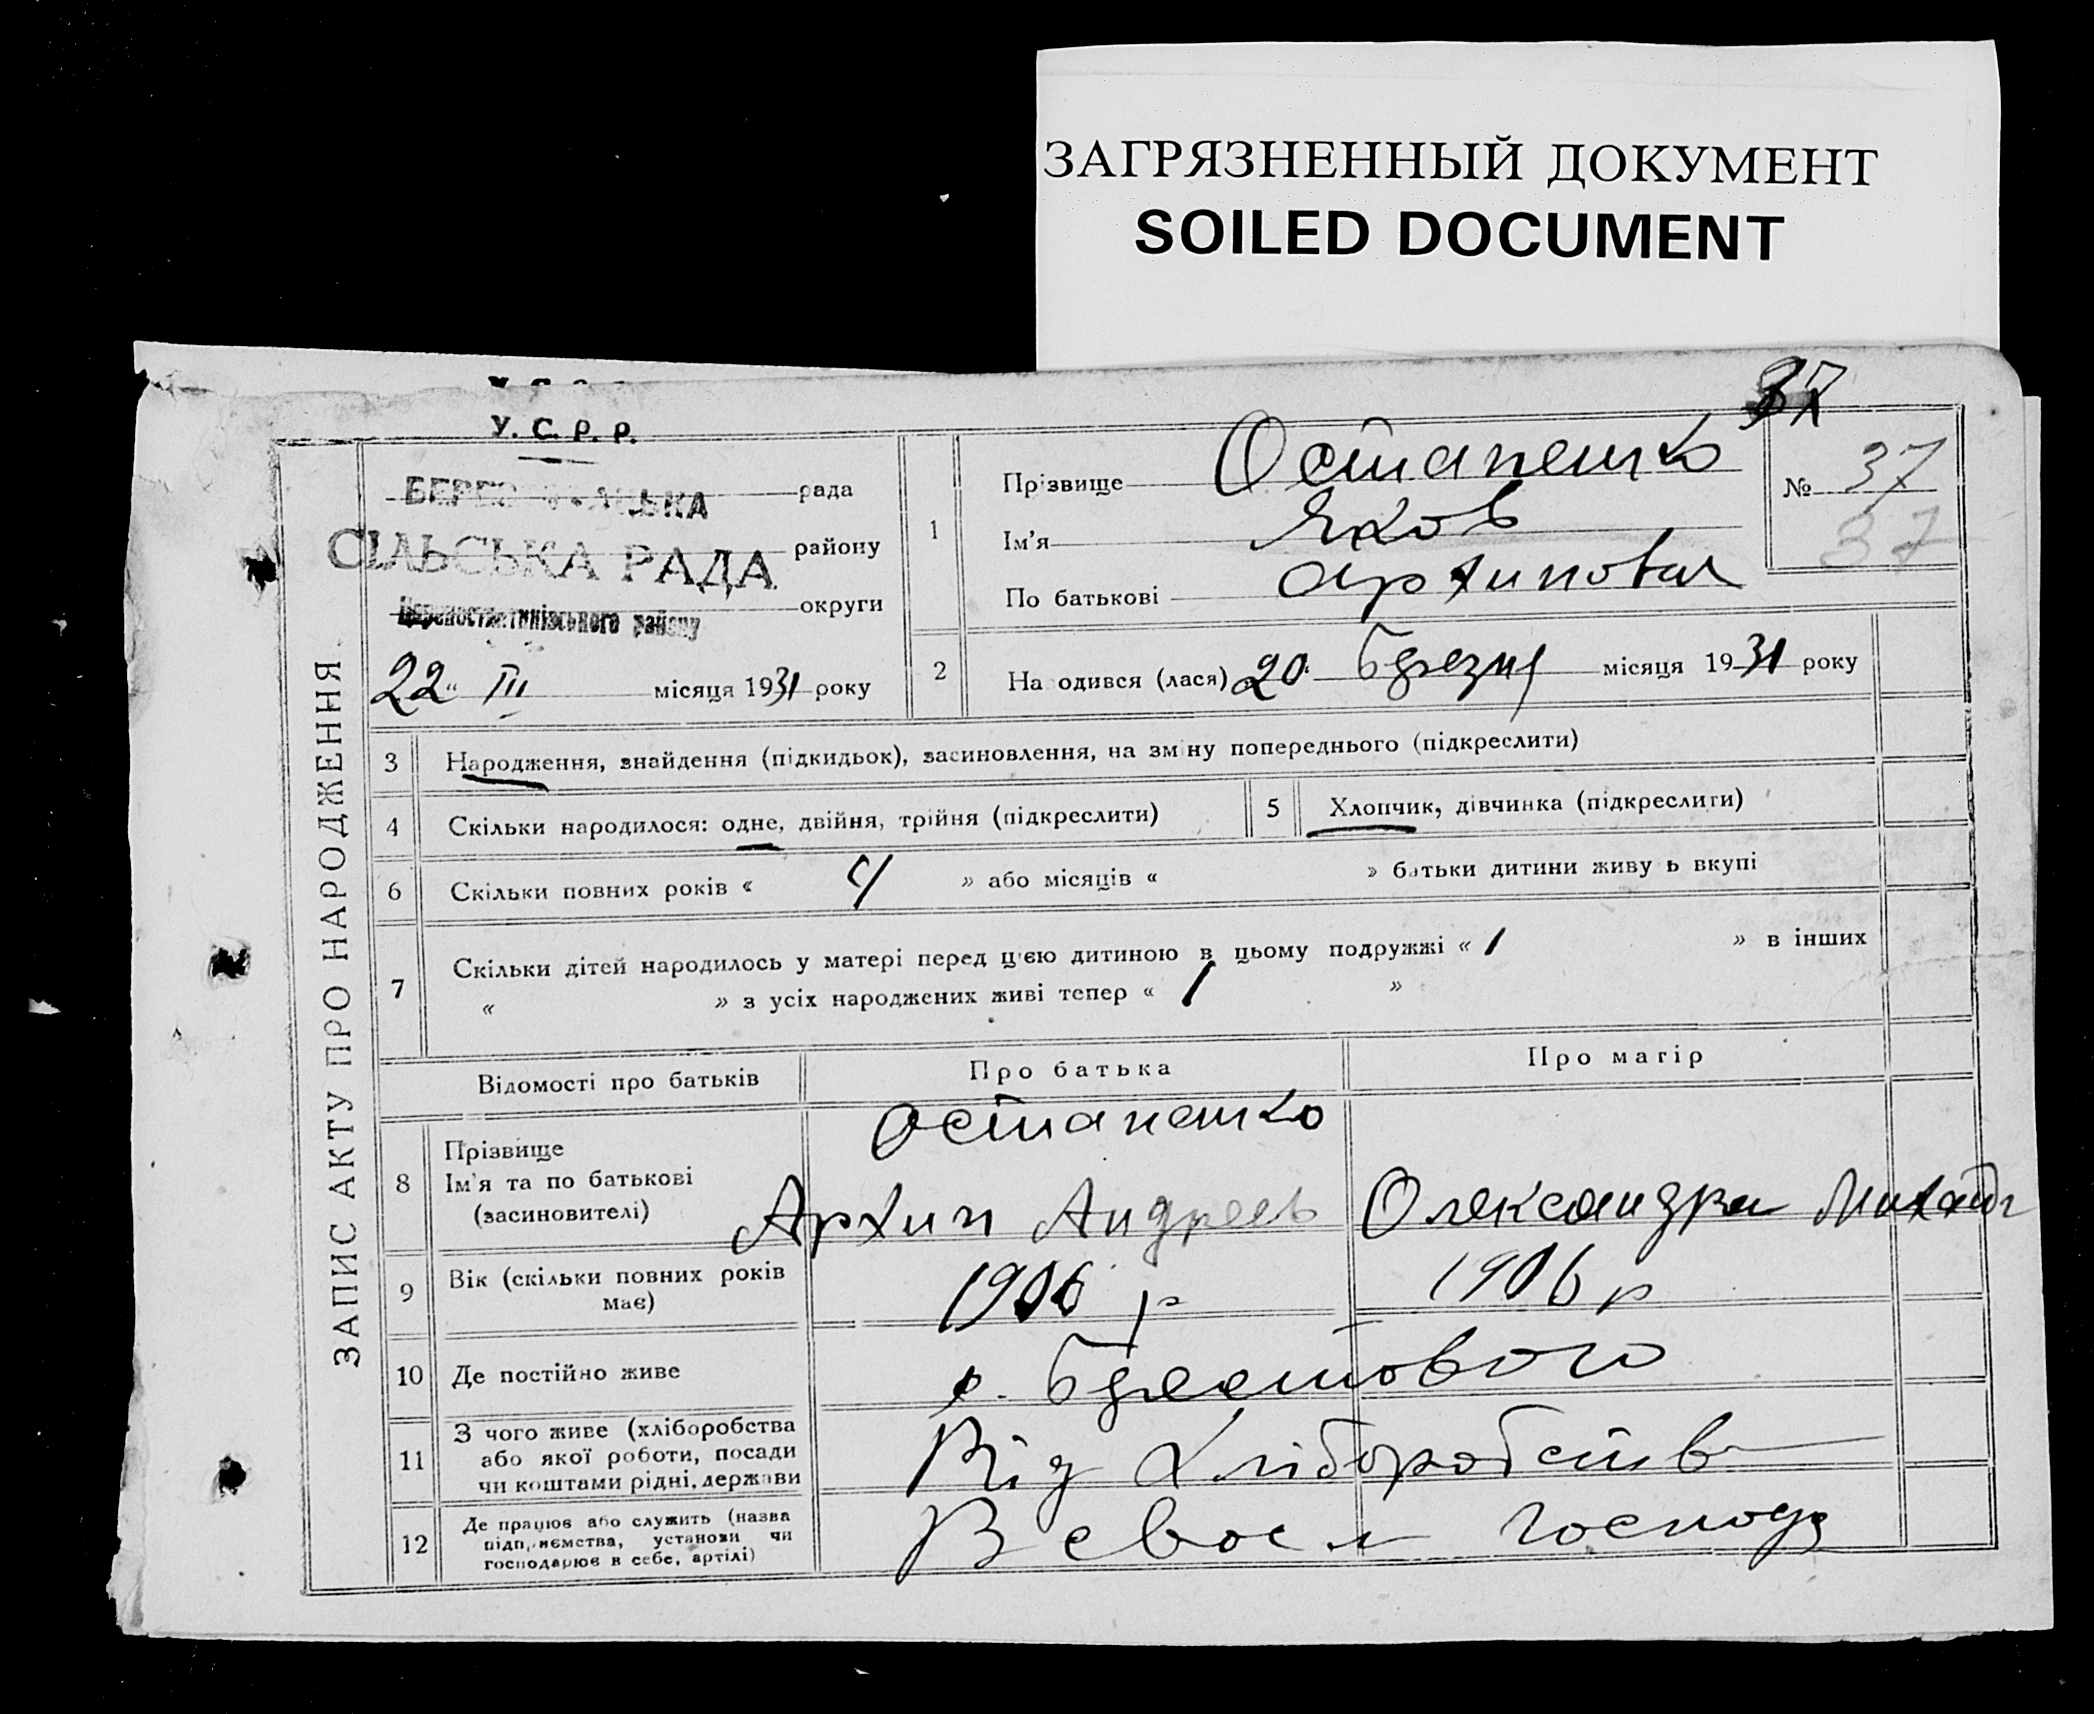 ЗАГРЯЗНЕННЫЙ ДОКУМЕНТ
SOILED DOCUMENT
37
У. С. Р. Р.
рада
СІЛЬСЬКА РАДА
району
округи
району
22 " III місяця 1931 року
ЗАПИС АКТУ ПРО НАРОДЖЕННЯ
1
Прізвище Остапенко
Ім'я Яков
По батькові Архипович
№ 37
37
2 На одився (лася) 20 Березня місяця 1931 року
3 Народження, знайдення (підкидьок), засиновлення, на зміну попереднього (підкреслити)
4 Скільки народилося: одне, двійня, трійня (підкреслити)
5 Хлопчик, дівчинка (підкреслити)
6 Скільки повних років « 4 » або місяців « » батьки дитини живу ь вкупі
7 Скільки дітей народилось у матері перед цією дитиною в цьому подружжі « 1 » в інших
« » з усіх народжених живі тепер « 1 »
Відомості про батьків
Про батька
Про матір
8 Прізвище
Ім'я та по батькові
(засиновителі)
Остапенко
Архип Андреев
Олександра Михайл
9 Вік (скільки повних років
має)
1906 р
1906 р
10 Де постійно живе
11 З чого живе (хліборобства
або якої роботи, посади
чи коштами рідні, держави
Від хліборобств
12 Де працює або служить (назва
підприємства, установи чи
господарює в себе, артілі)
В своєм господ